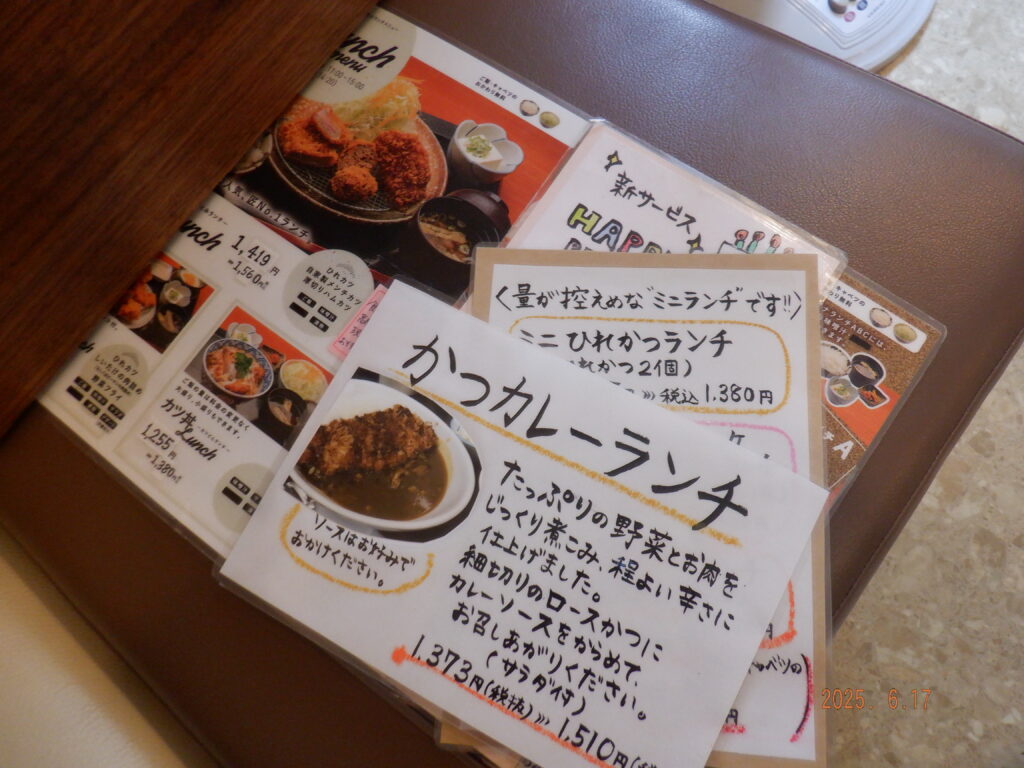 nch
menu
11:00~15:00
ご飯・キャベツの
おかわり無料
人気、匠No.1ランチ
1,419円
1,560円
ひれカツ
自家製メンチカツ
厚切りハムカツ
ひれカツ
しいたけの肉詰め
野菜フライ
ご飯の量は料金の変更なく
大盛り、小盛りもできます。
カツ丼
Lunch
1,255円
1,380円
新サービス
HAPP
A
〈量が控えめな“ミニランチ”です!!〉
ミニ ひれかつランチ
れかつ2個)
税込 1.380円
かつカレーランチ
ソースはお好みで
おかけください。
たっぷりの野菜とお肉を
じっくり煮こみ、程よい辛さに
仕上げました。
細切りのロースかつに
カレーソースをからめて、
お召しあがりください。
(サラダ付)
1.373円(税抜)》 1.510円(税
2025. 6.17